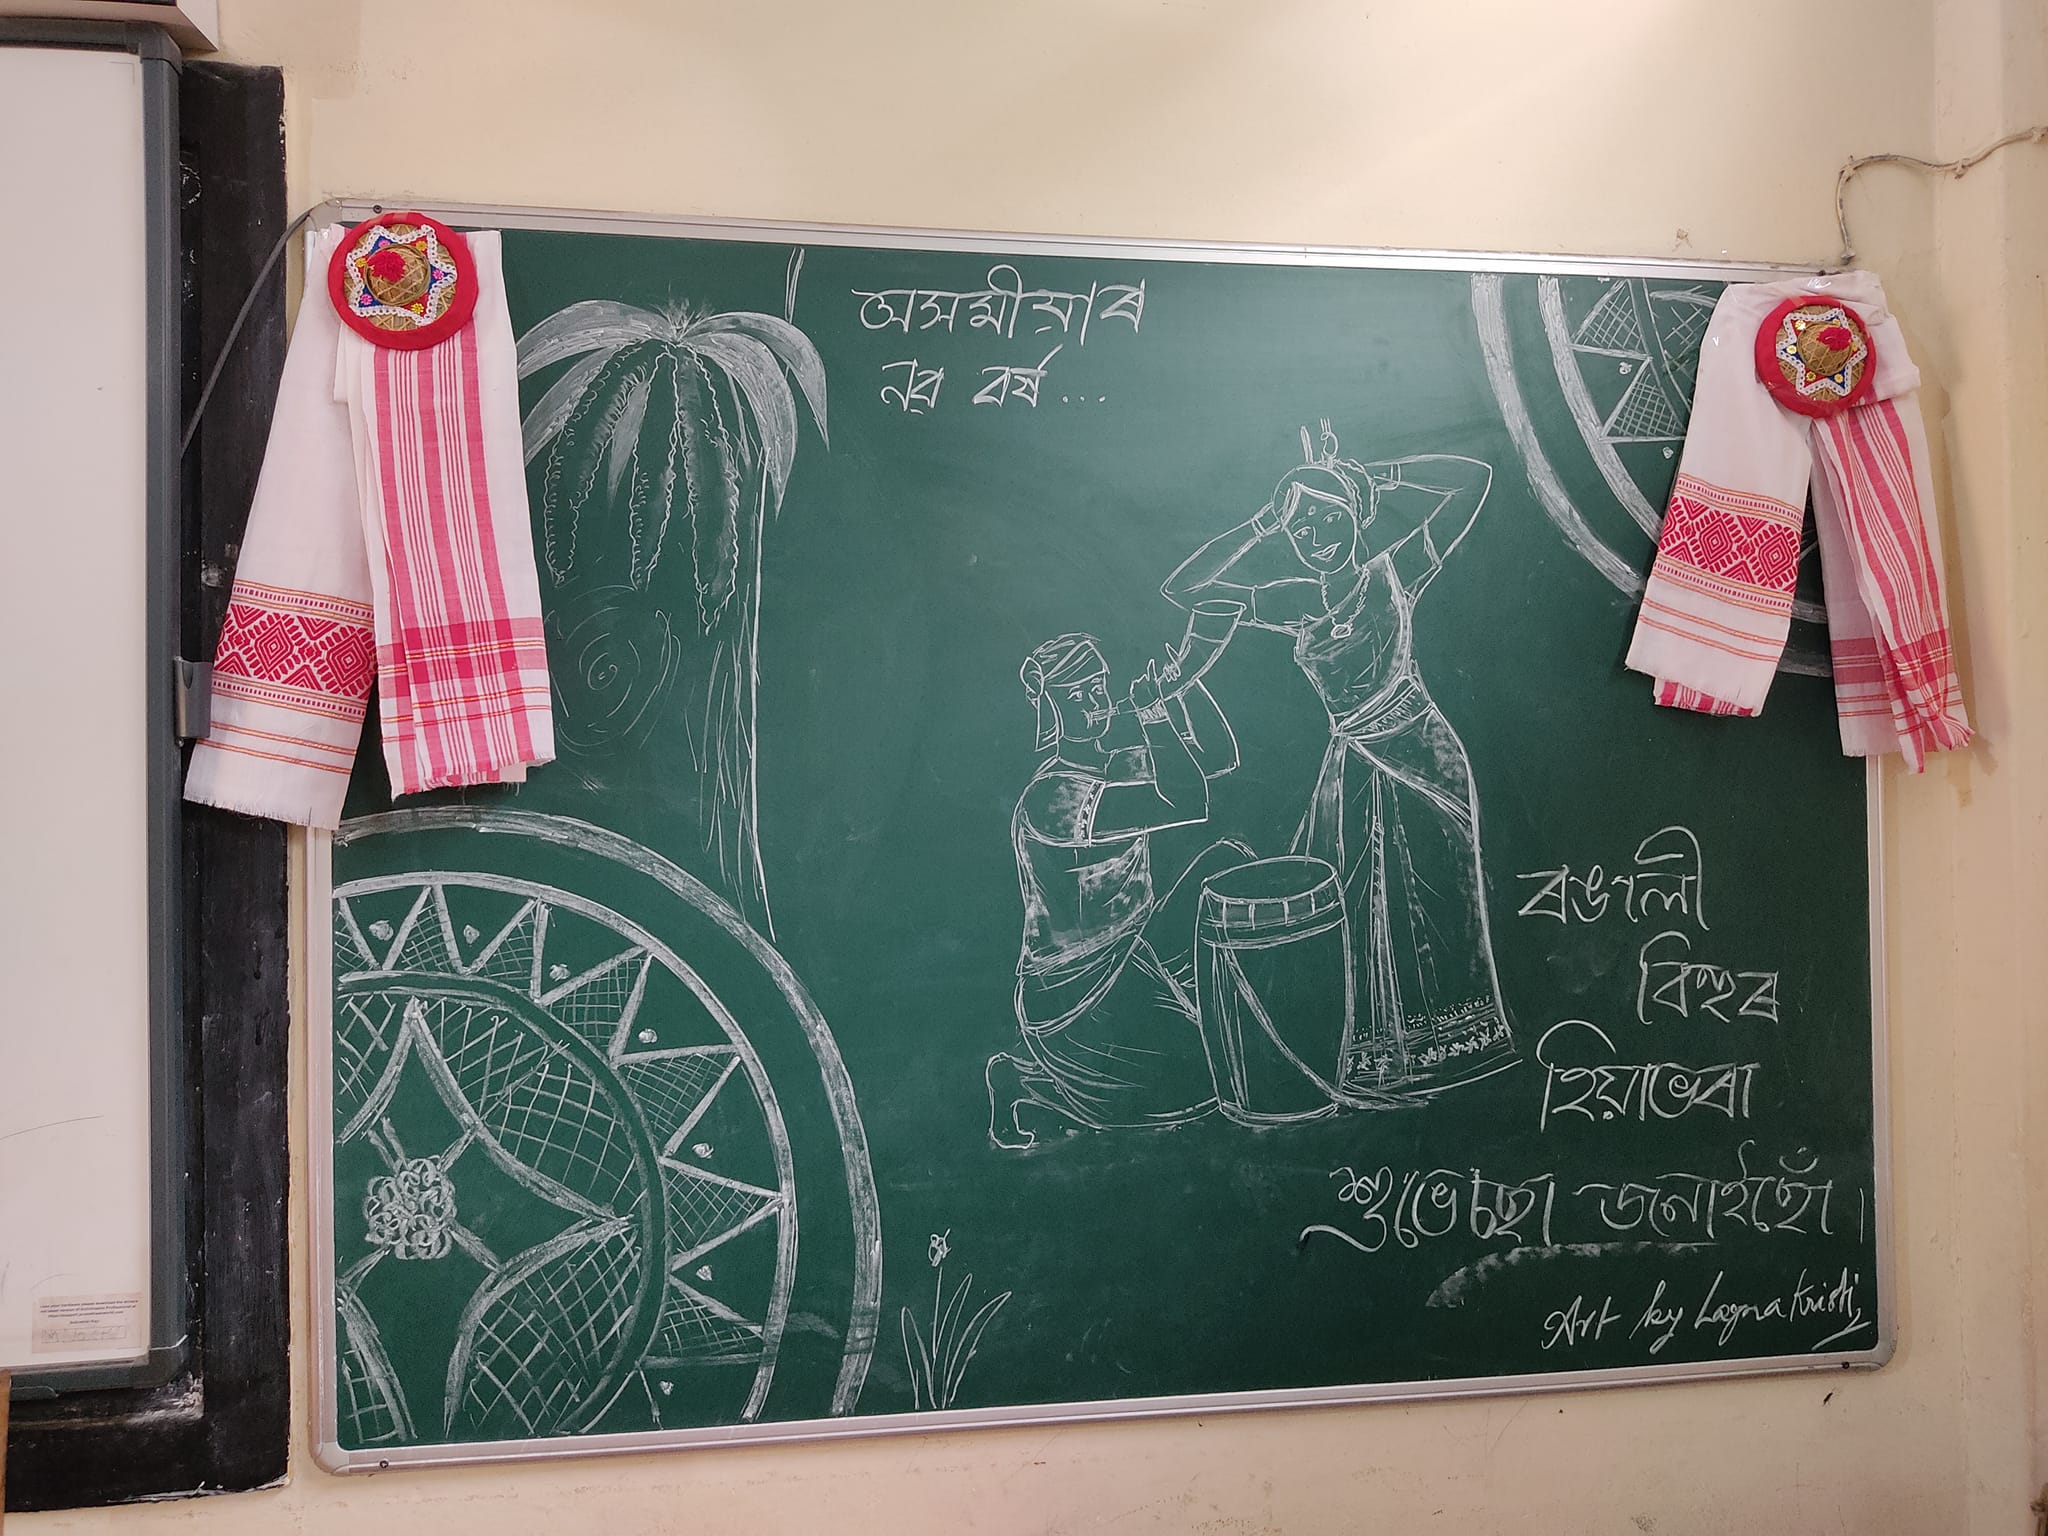 অসমীয়াৰ
নৱ বৰ্ষ...
ৰঙালী
বিহুৰ
হিয়াভৰা
শুভেচ্ছা জনাইছোঁ।
Art by Lagna Kristi